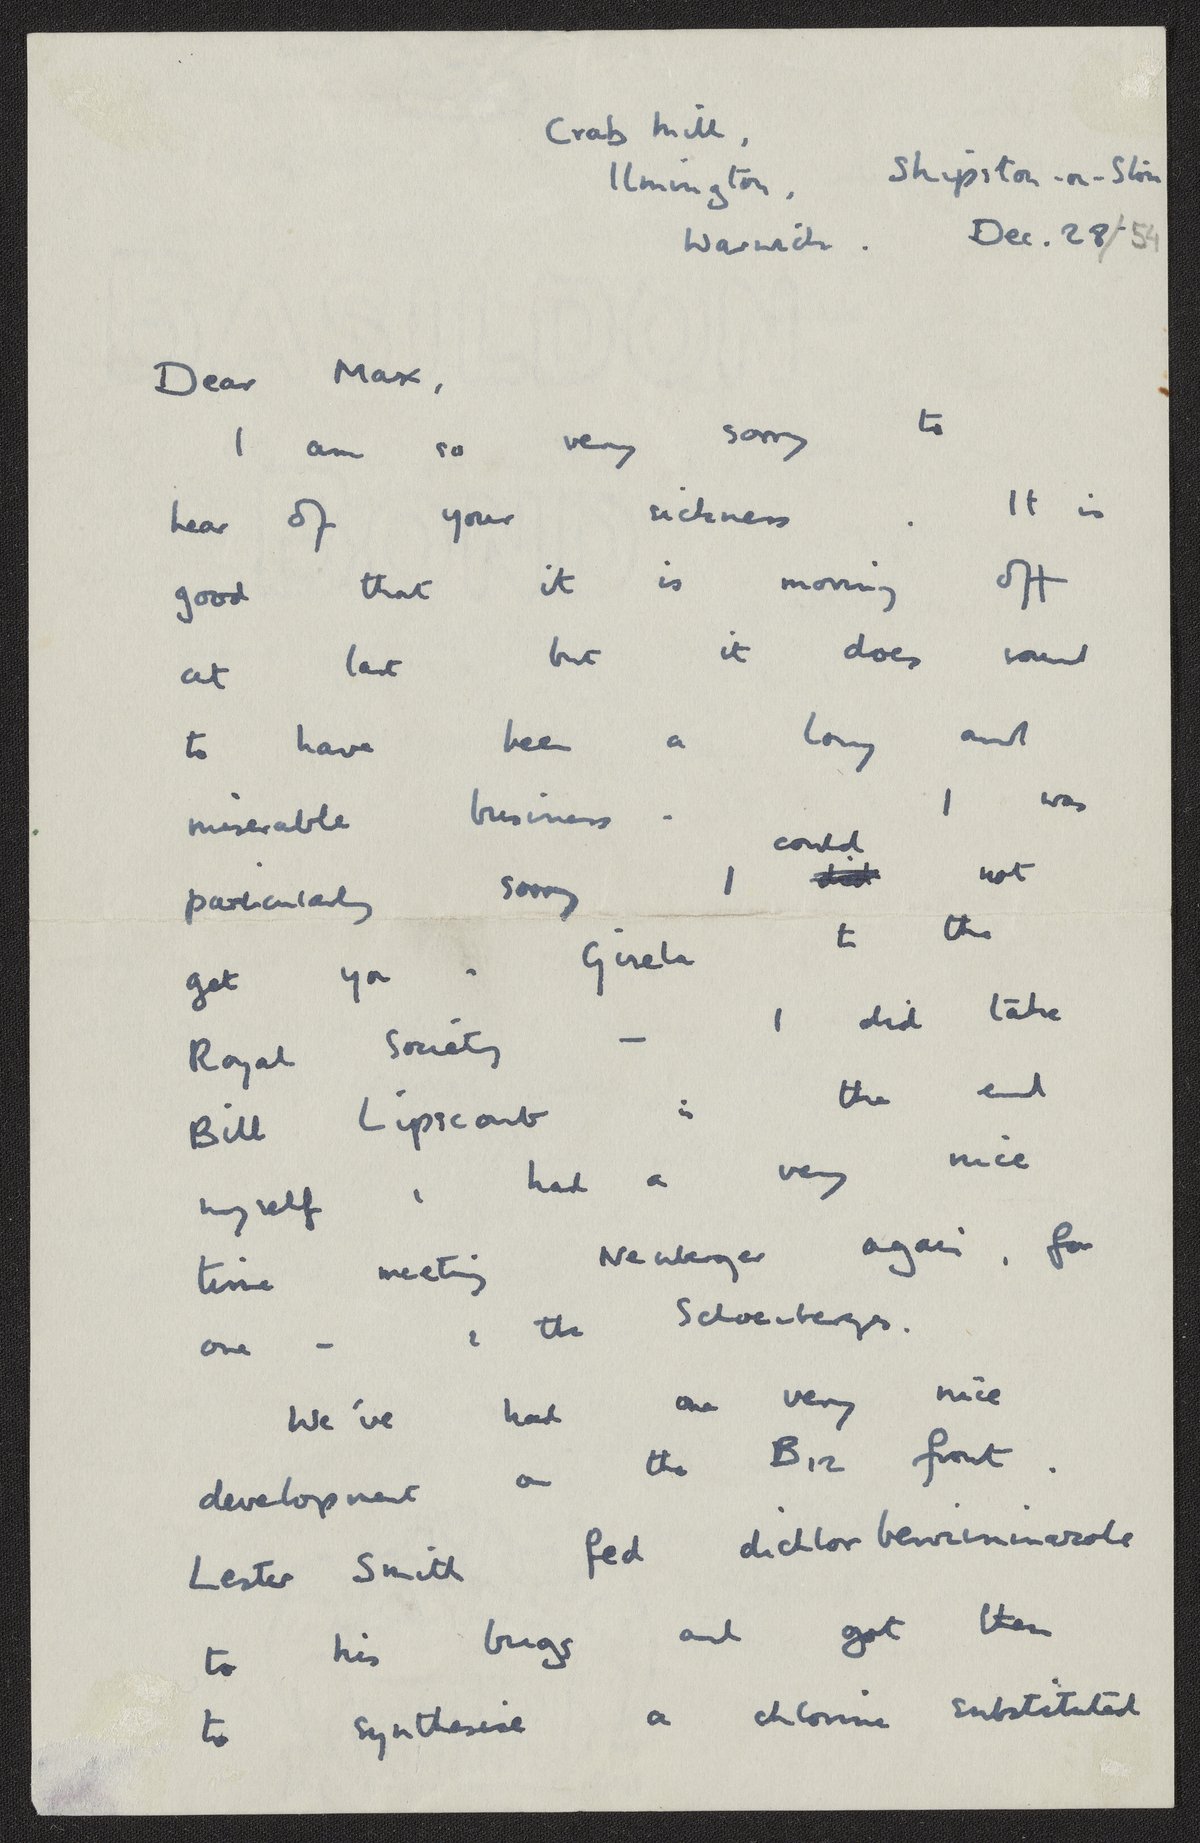 Crab Mill,
Ilmington, Shipston-on-Stour
Warwick. Dec. 28/54
Dear Max,
I am so very sorry to
hear of your sickness. It is
good that it is moving off
at last but it does sound
to have been a long and
miserable business. I was
particularly sorry I could did not
get you & Gisela to the
Royal Society – I did take
Bill Lipscomb in the end
myself & had a very nice
time meeting Neuberger again, for
one – & the Schoenbergs.
We've had one very nice
development on the B12 front.
Lester Smith fed dichlorbenziminazole
to his bugs and got them
to synthesise a chlorine substituted